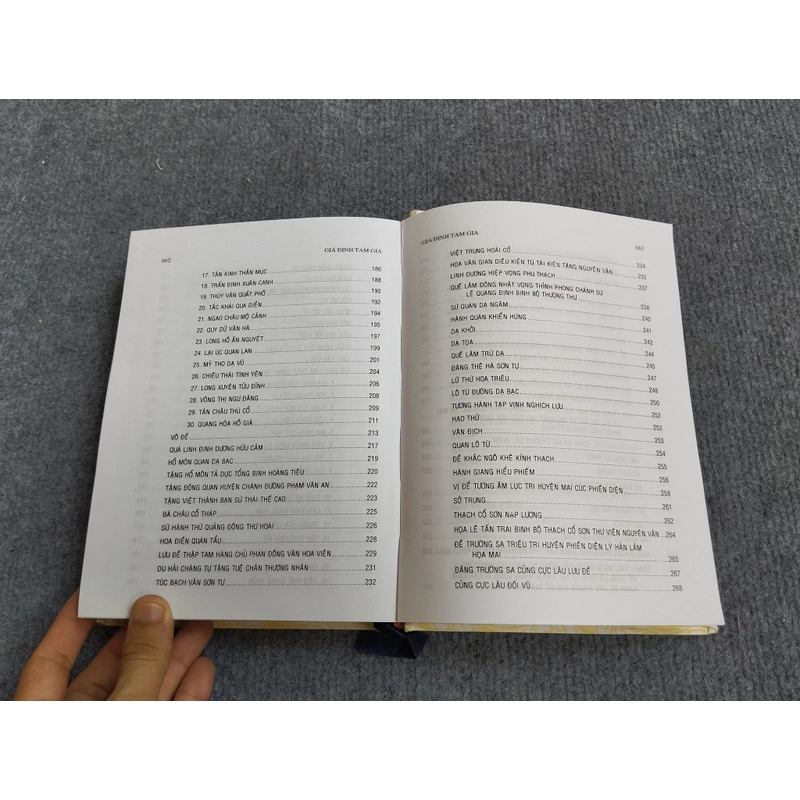 662
GIA ĐỊNH TAM GIA
17. TÂN KINH THẦN MỤC 186
18. TRẤN ĐỊNH XUÂN CANH 188
19. THUY VÂN QUẤT PHỐ 190
20. TẮC KHÁI QUA ĐIỀN 192
21. NGAO CHÂU MỘ CẢNH 194
22. QUY DỮ VÃN HÀ 195
23. LONG HỒ ẤN NGUYỆT 197
24. LẠI ÚC QUAN LAN 199
25. MỸ THO DẠ VŨ 201
26. CHIÊU THÁI TÌNH YÊN 204
27. LONG XUYÊN TỬU ĐÌNH 206
28. VÕNG THỊ NGƯ ĐĂNG 208
29. TÂN CHÂU THÚ CỔ 209
30. QUANG HÓA HỒ GIÀ 211
VÔ ĐỀ 213
QUÁ LINH ĐỊNH DƯƠNG HỮU CẢM 217
HỔ MÔN QUAN DẠ BẠC 219
TẶNG HỔ MÔN TẢ DỰC TỔNG BINH HOÀNG TIÊU 220
TẶNG ĐÔNG QUAN HUYỆN CHÁNH ĐƯỜNG PHẠM VĂN AN 222
TẶNG VIỆT THÀNH BẠN SỨ THÁI THẾ CAO 223
BÀ CHÂU CỔ THÁP 225
SỨ HÀNH THỨ QUẢNG ĐÔNG THƯ HOÀI 226
HOA ĐIỀN QUÁN TẨU 228
LƯU ĐỀ THẬP TAM HÀNG CHỦ PHAN ĐỒNG VĂN HOA VIÊN 229
DU HẢI CHÀNG TỰ TẶNG TUỆ CHÂN THƯỢNG NHÂN 231
TÚC BẠCH VÂN SƠN TỰ 232
GIA ĐỊNH TAM GIA
663
VIỆT TRUNG HOÀI CỔ 234
HỌA VĂN GIAN DIÊU KIẾN TỪ TÀI KIẾN TẶNG NGUYÊN VẬN 235
LINH DƯƠNG HIỆP VỌNG PHU THẠCH 237
QUẾ LÂM ĐÔNG NHẬT VỌNG THỈNH PHONG CHÁNH SỨ
LÊ QUANG ĐỊNH BINH BỘ THƯỢNG THƯ 238
SỨ QUÁN DẠ NGÂM 240
HÀNH QUÁN KHIỂN HỨNG 241
DẠ KHỞI 242
DẠ TỌA 244
QUẾ LÂM TRÚ DẠ 245
ĐĂNG THÊ HÀ SƠN TỰ 247
LỮ THỨ HOA TRIÊU 248
LÔ TỪ ĐƯỜNG DẠ BẠC 250
TƯƠNG HÀNH TẠP VỊNH NGHỊCH LƯU 252
HẠO THỬ 253
VĂN ĐỊCH 254
QUAN LÔ TỪ 255
ĐỀ KHẮC NGÔ KHÊ KÍNH THẠCH 256
HÀNH GIANG HIỂU PHIẾM 258
VỊ ĐỀ TƯƠNG ÂM LỤC TRI HUYỆN MAI CÚC PHIẾN DIỆN 261
SỞ TRUNG 262
THẠCH CỔ SƠN NẠP LƯƠNG 264
HỌA LÊ TẤN TRAI BINH BỘ THẠCH CỔ SƠN THƯ VIỆN NGUYÊN VẬN
ĐỀ TRƯỜNG SA TRIỆU TRI HUYỆN PHIẾN DIỆN LÝ HÀN LÂM
HỌA MAI 265
ĐĂNG TRƯỜNG SA CÙNG CỰC LÂU LƯU ĐỀ 267
CÙNG CỰC LÂU ĐỐI VŨ 268